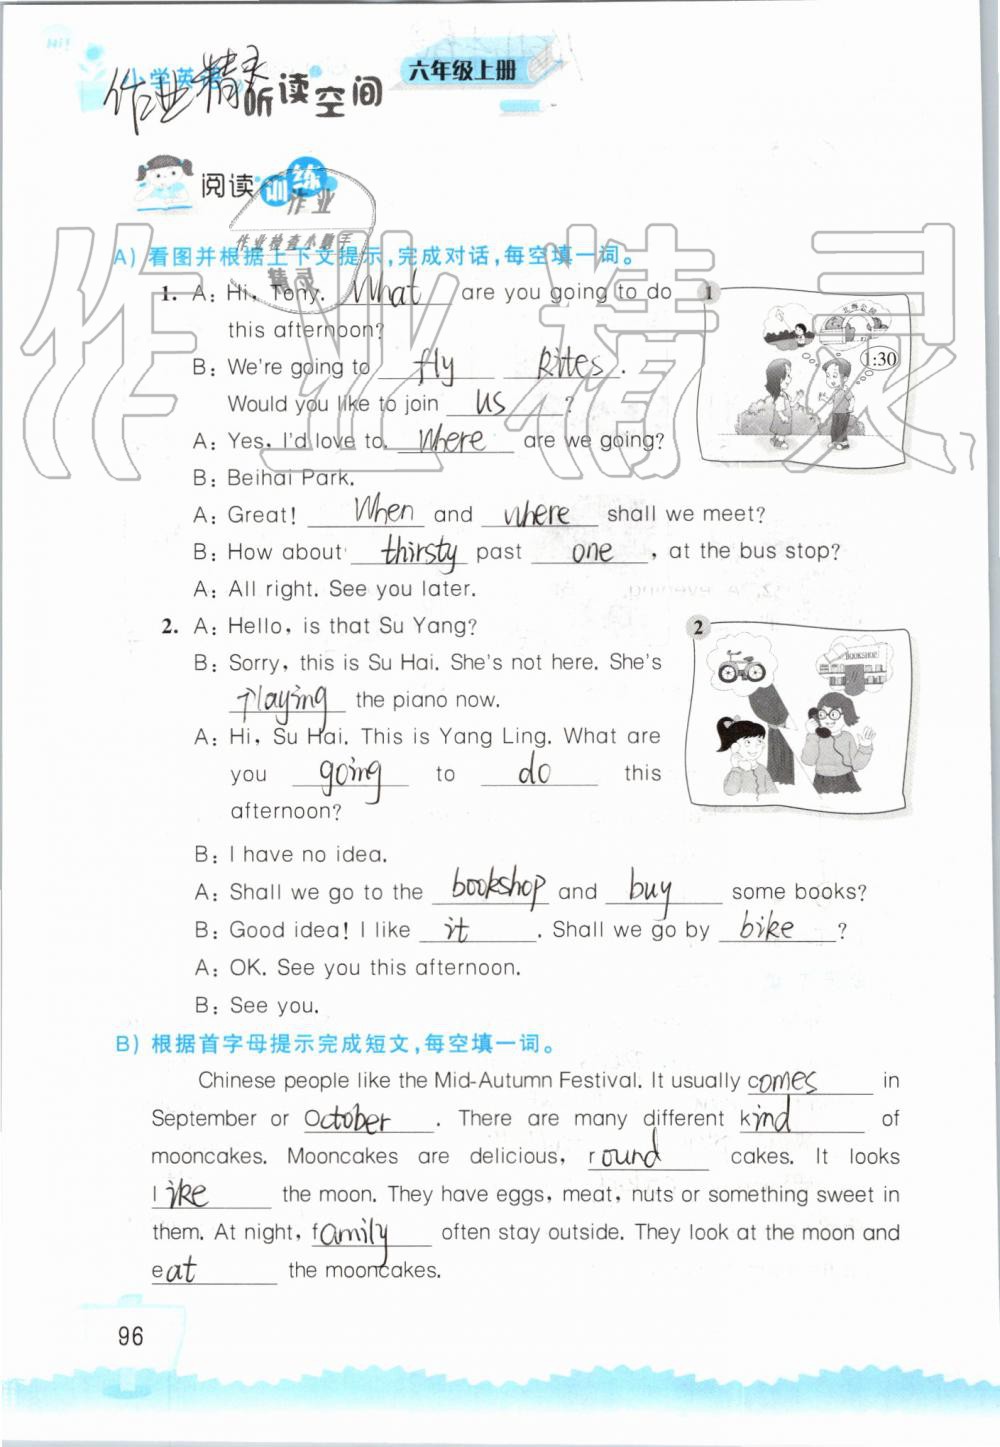 Hi!
小学英语
听读空间
六年级上册
作业精灵
阅读训练
作业
作业检查小助手
精灵
A) 看图并根据上下文提示,完成对话,每空填一词。
1. A: Hi, Tony. What are you going to do
this afternoon?
B: We're going to fly kites.
Would you like to join us?
A: Yes, I'd love to. Where are we going?
B: Beihai Park.
A: Great! When and where shall we meet?
B: How about thirsty past one, at the bus stop?
A: All right. See you later.
1
北海公园
1:30
2. A: Hello, is that Su Yang?
B: Sorry, this is Su Hai. She's not here. She's
playing the piano now.
A: Hi, Su Hai. This is Yang Ling. What are
you going to do this
afternoon?
B: I have no idea.
A: Shall we go to the bookshop and buy some books?
B: Good idea! I like it. Shall we go by bike?
A: OK. See you this afternoon.
B: See you.
2
BOOKSHOP
B) 根据首字母提示完成短文,每空填一词。
Chinese people like the Mid-Autumn Festival. It usually comes in
September or October. There are many different kind of
mooncakes. Mooncakes are delicious, round cakes. It looks
like the moon. They have eggs, meat, nuts or something sweet in
them. At night, family often stay outside. They look at the moon and
eat the mooncakes.
96
作业精灵